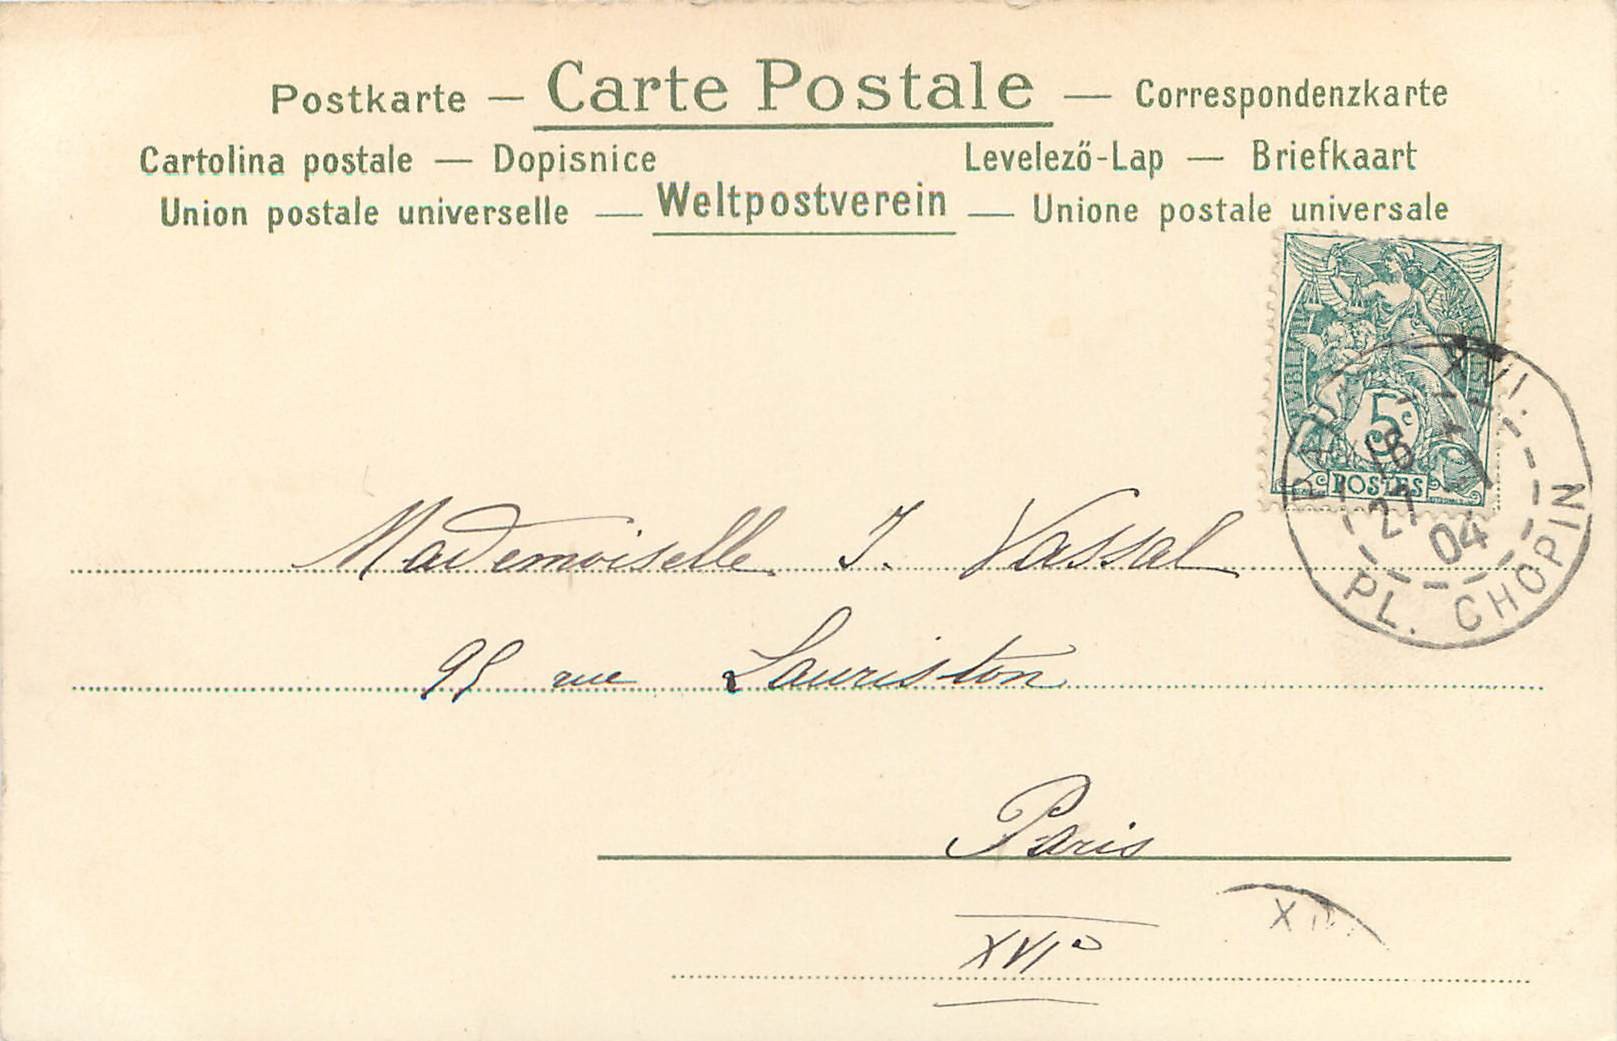 Postkarte — Carte Postale — Correspondenzkarte
Cartolina postale — Dopisnice Levelező-Lap — Briefkaart
Union postale universelle — Weltpostverein — Unione postale universale
5c
POSTES
PARIS XVI.
18
27 04
PL. CHOPIN
Mademoiselle J. Vassal
95 rue Lauriston
Paris
XVIe